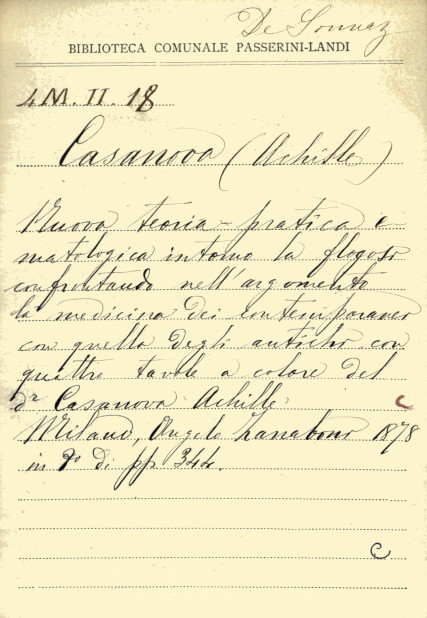 De Sonnaz
BIBLIOTECA COMUNALE PASSERINI-LANDI
4M. II. 18
Casanova (Achille)
Nuova teoria-pratica e
matologica intorno la flogosi
confrontando nell'argomento
la medicina dei contemporanei
con quella degli antichi con
quattro tavole a colore del
dr Casanova Achille
Milano, Angelo Zanaboni 1878
in 8º di pp 344.
C